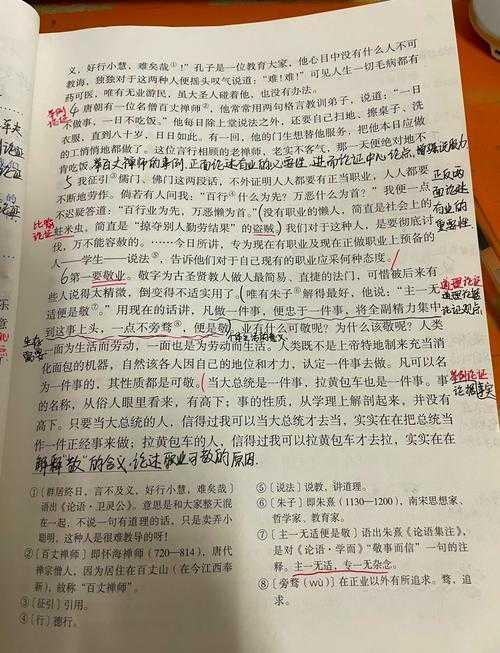 义，好行小慧，难矣哉①！”孔子是一位教育大家，他心目中没有什么人不可
教诲，独独对于这两种人便摇头叹气说道：“难!难!”可见人生一切毛病都有
药可医，唯有无业游民，虽大圣人碰着他，也没有办法。
举例
论证
4 唐朝有一位名僧百丈禅师②，他常常用两句格言教训弟子，说道：“一日
不做事，一日不吃饭。”他每日除上堂说法之外，还要自己扫地、擦桌子、洗
衣服，直到八十岁，日日如此。有一回，他的门生想替他服务，把他本日应做
的工悄悄都做了。这位言行相顾的老禅师，老实不客气，那一天便绝对地不
肯吃饭。
举百丈禅师的事例，正面论述有业的必要性，进而论证中心论点，增强说服力
5 我征引③儒门、佛门这两段话，不外证明人人都要有正当职业，人人都要
不断地劳作。倘若有人问我：“百行④什么为先？万恶什么为首？”我便一点
不迟疑答道：“百行业为先，万恶懒为首。”没有职业的懒人，简直是社会上的
蛀米虫，简直是“掠夺别人勤劳结果”的盗贼。我们对于这种人，是要彻底讨
伐，万不能容赦的。……今日所讲，专为现在有职业及现在正做职业上预备的
人——学生——说法⑤，告诉他们对于自己现有的职业应采何种态度。
正反两
面论述
有业的
重要性
比喻
论证
6 第一要敬业。敬字为古圣贤教人做人最简易、直捷的法门，可惜被后来有
些人说得太精微，倒变得不适实用了。唯有朱子⑥解得最好，他说：“主一无
适便是敬⑦。”用现在的话讲，凡做一件事，便忠于一件事，将全副精力集中
到这事上头，一点不旁骛⑧，便是敬。业有什么可敬呢？为什么该敬呢？人类
一面为生活而劳动，一面也是为劳动而生活。人类既不是上帝特地制来充当消
化面包的机器，自然该各人因自己的地位和才力，认定一件事去做。凡可以名
为一件事的，其性质都是可敬。当大总统是一件事，拉黄包车也是一件事。事
的名称，从俗人眼里看来，有高下；事的性质，从学理上解剖起来，并没有
高下。只要当大总统的人，信得过我可以当大总统才去当，实实在在把总统当
作一件正经事来做；拉黄包车的人，信得过我可以拉黄包车才去拉，实实在在
道理论证
举例论证
解释“敬”的含义，论述职业可敬的原因.
①〔群居终日，言不及义，好行小慧，难矣哉〕
语出《论语·卫灵公》。意思是和大家整天混
在一起，不说一句有道理的话，只是卖弄小
聪明，这种人是很难教导的呀！
②〔百丈禅师〕即怀海禅师（720—814），唐代
禅宗僧人，因为居住在百丈山（在今江西奉
新），故称“百丈禅师”。
③〔征引〕引用。
④〔行〕德行。
⑤〔说法〕说教，讲道理。
⑥〔朱子〕即朱熹（1130—1200），南宋思想家、
哲学家、教育家。
⑦〔主一无适便是敬〕语出朱熹《论语集注》，
是对《论语·学而》“敬事而信”一句的注
释。主一无适，专一无杂念。
⑧〔旁骛（wù）〕在正业以外有所追求。骛，追
求。